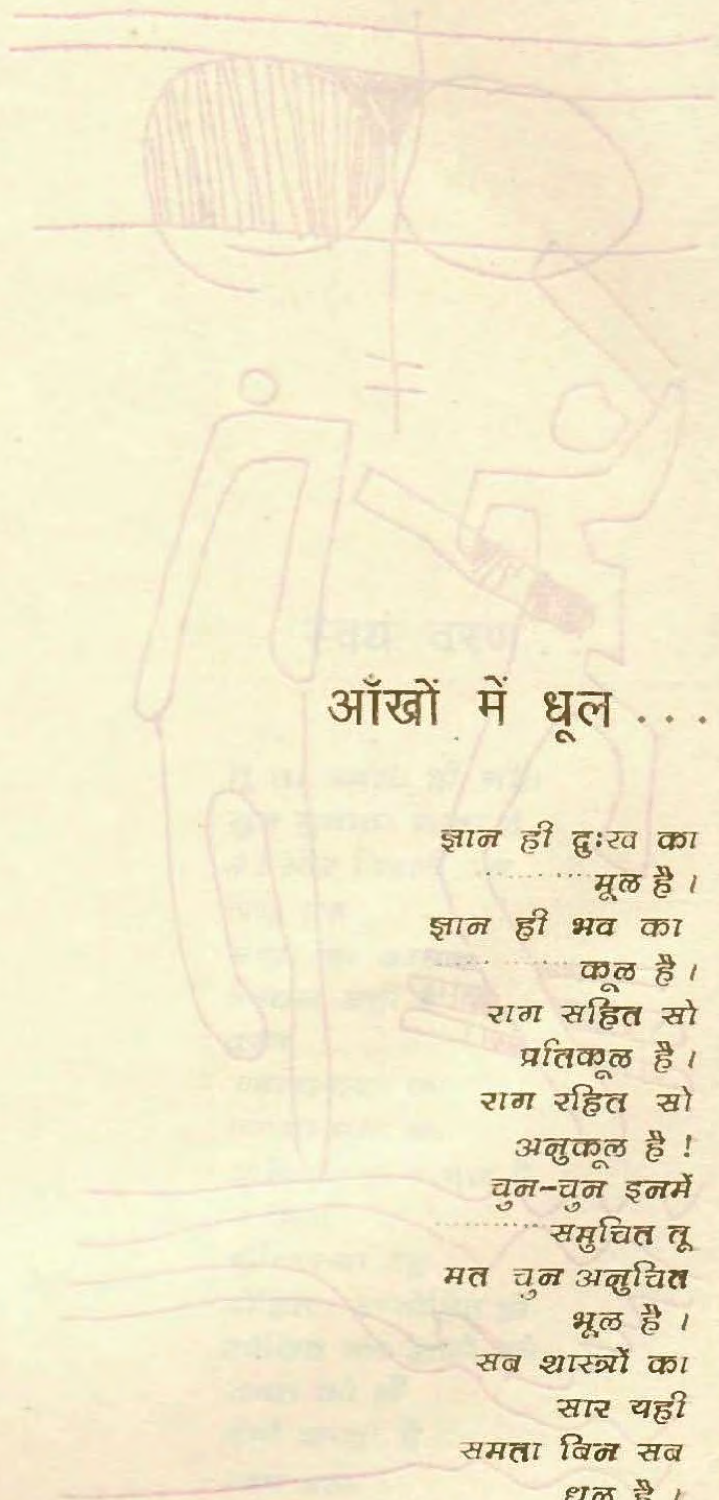 आँखों में धूल ...
ज्ञान ही दुःख का
......... मूल है ।
ज्ञान ही भव का
......... कूल है ।
राग सहित सो
प्रतिकूल है ।
राग रहित सो
अनुकूल है !
चुन-चुन इनमें
......... समुचित तू
मत चुन अनुचित
भूल है ।
सब शास्त्रों का
सार यही
समता बिन सब
धूल है ।